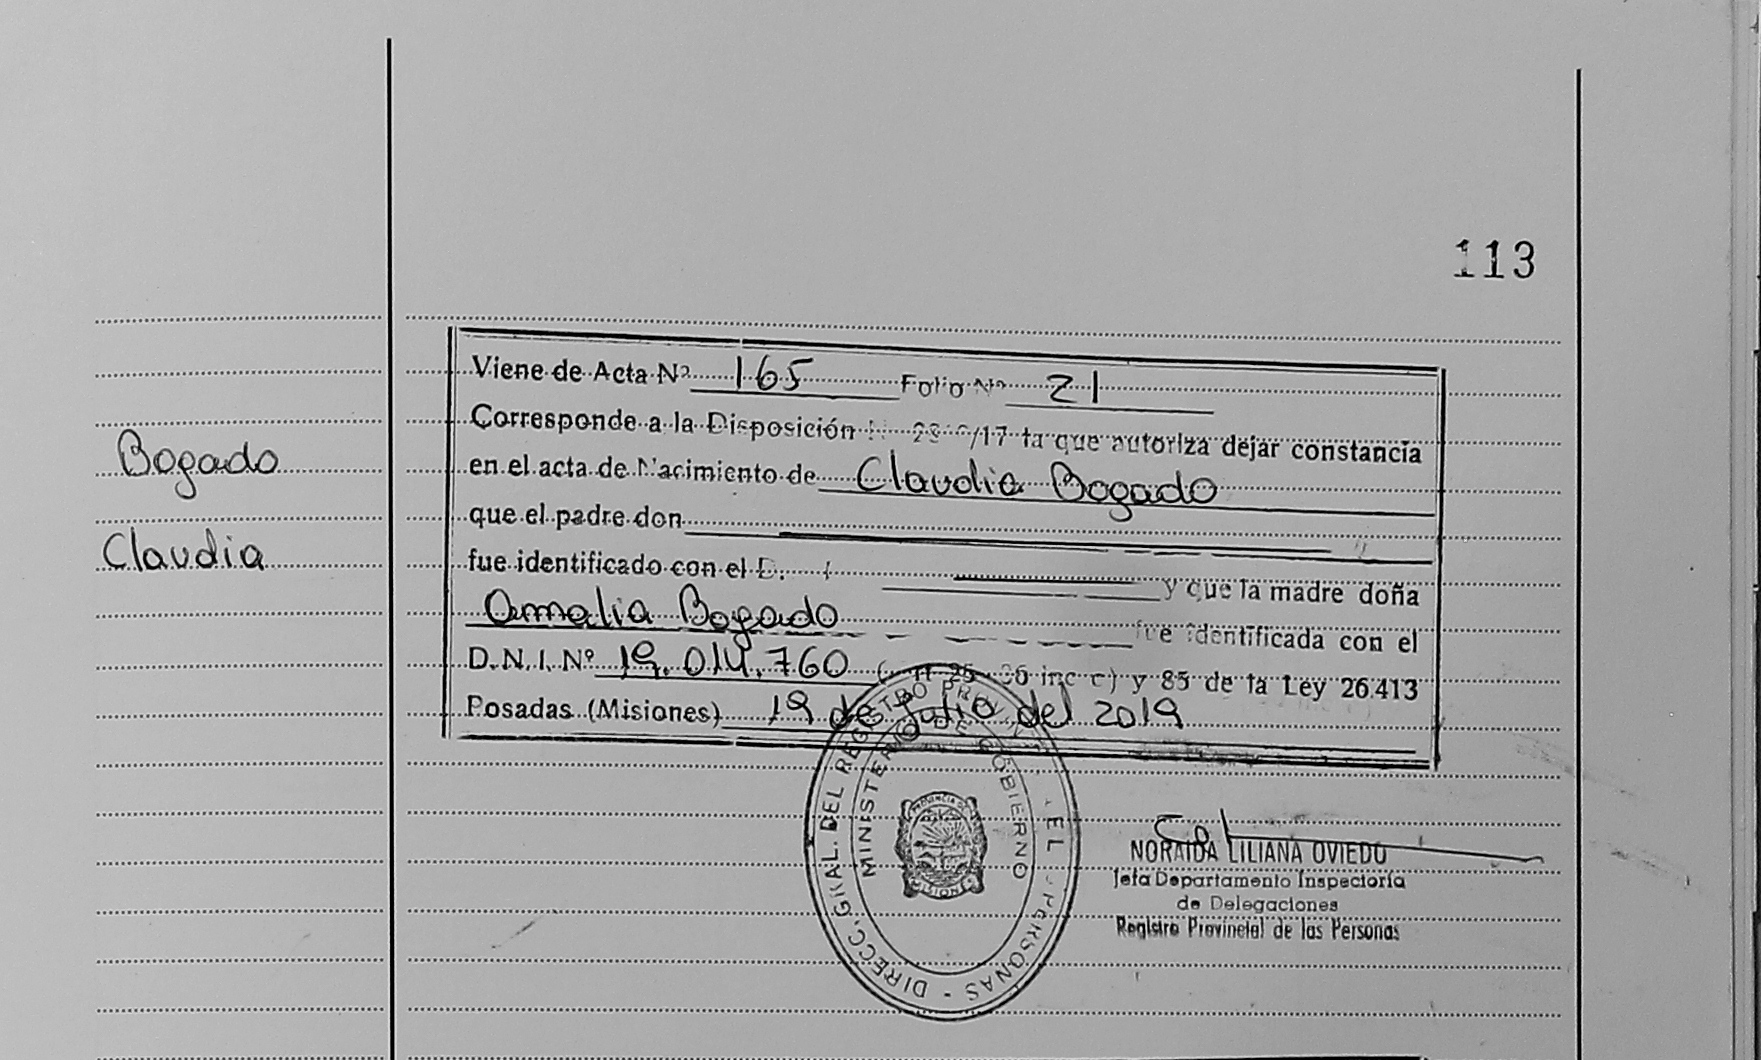 113
Bogado
Claudia
Viene de Acta Nº 165 Folio Nº 21
Corresponde a la Disposición /17 ta que autoriza dejar constancia
en el acta de Nacimiento de Claudia Bogado
que el padre don
fue identificado con el D. y que la madre doña
Amalia Bogado fue identificada con el
D.N.I. Nº 19.014.760 inc c) y 85 de la Ley 26.413
Posadas (Misiones) 19 de Julio del 2019
DIRECC. GRAL. DEL REGISTRO PERSONAS
MINISTERIO DE GOBIERNO
PROVINCIA DE
MISIONES
NORAIDA LILIANA OVIEDO
Jefa Departamento Inspectoría
de Delegaciones
Registro Provincial de las Personas